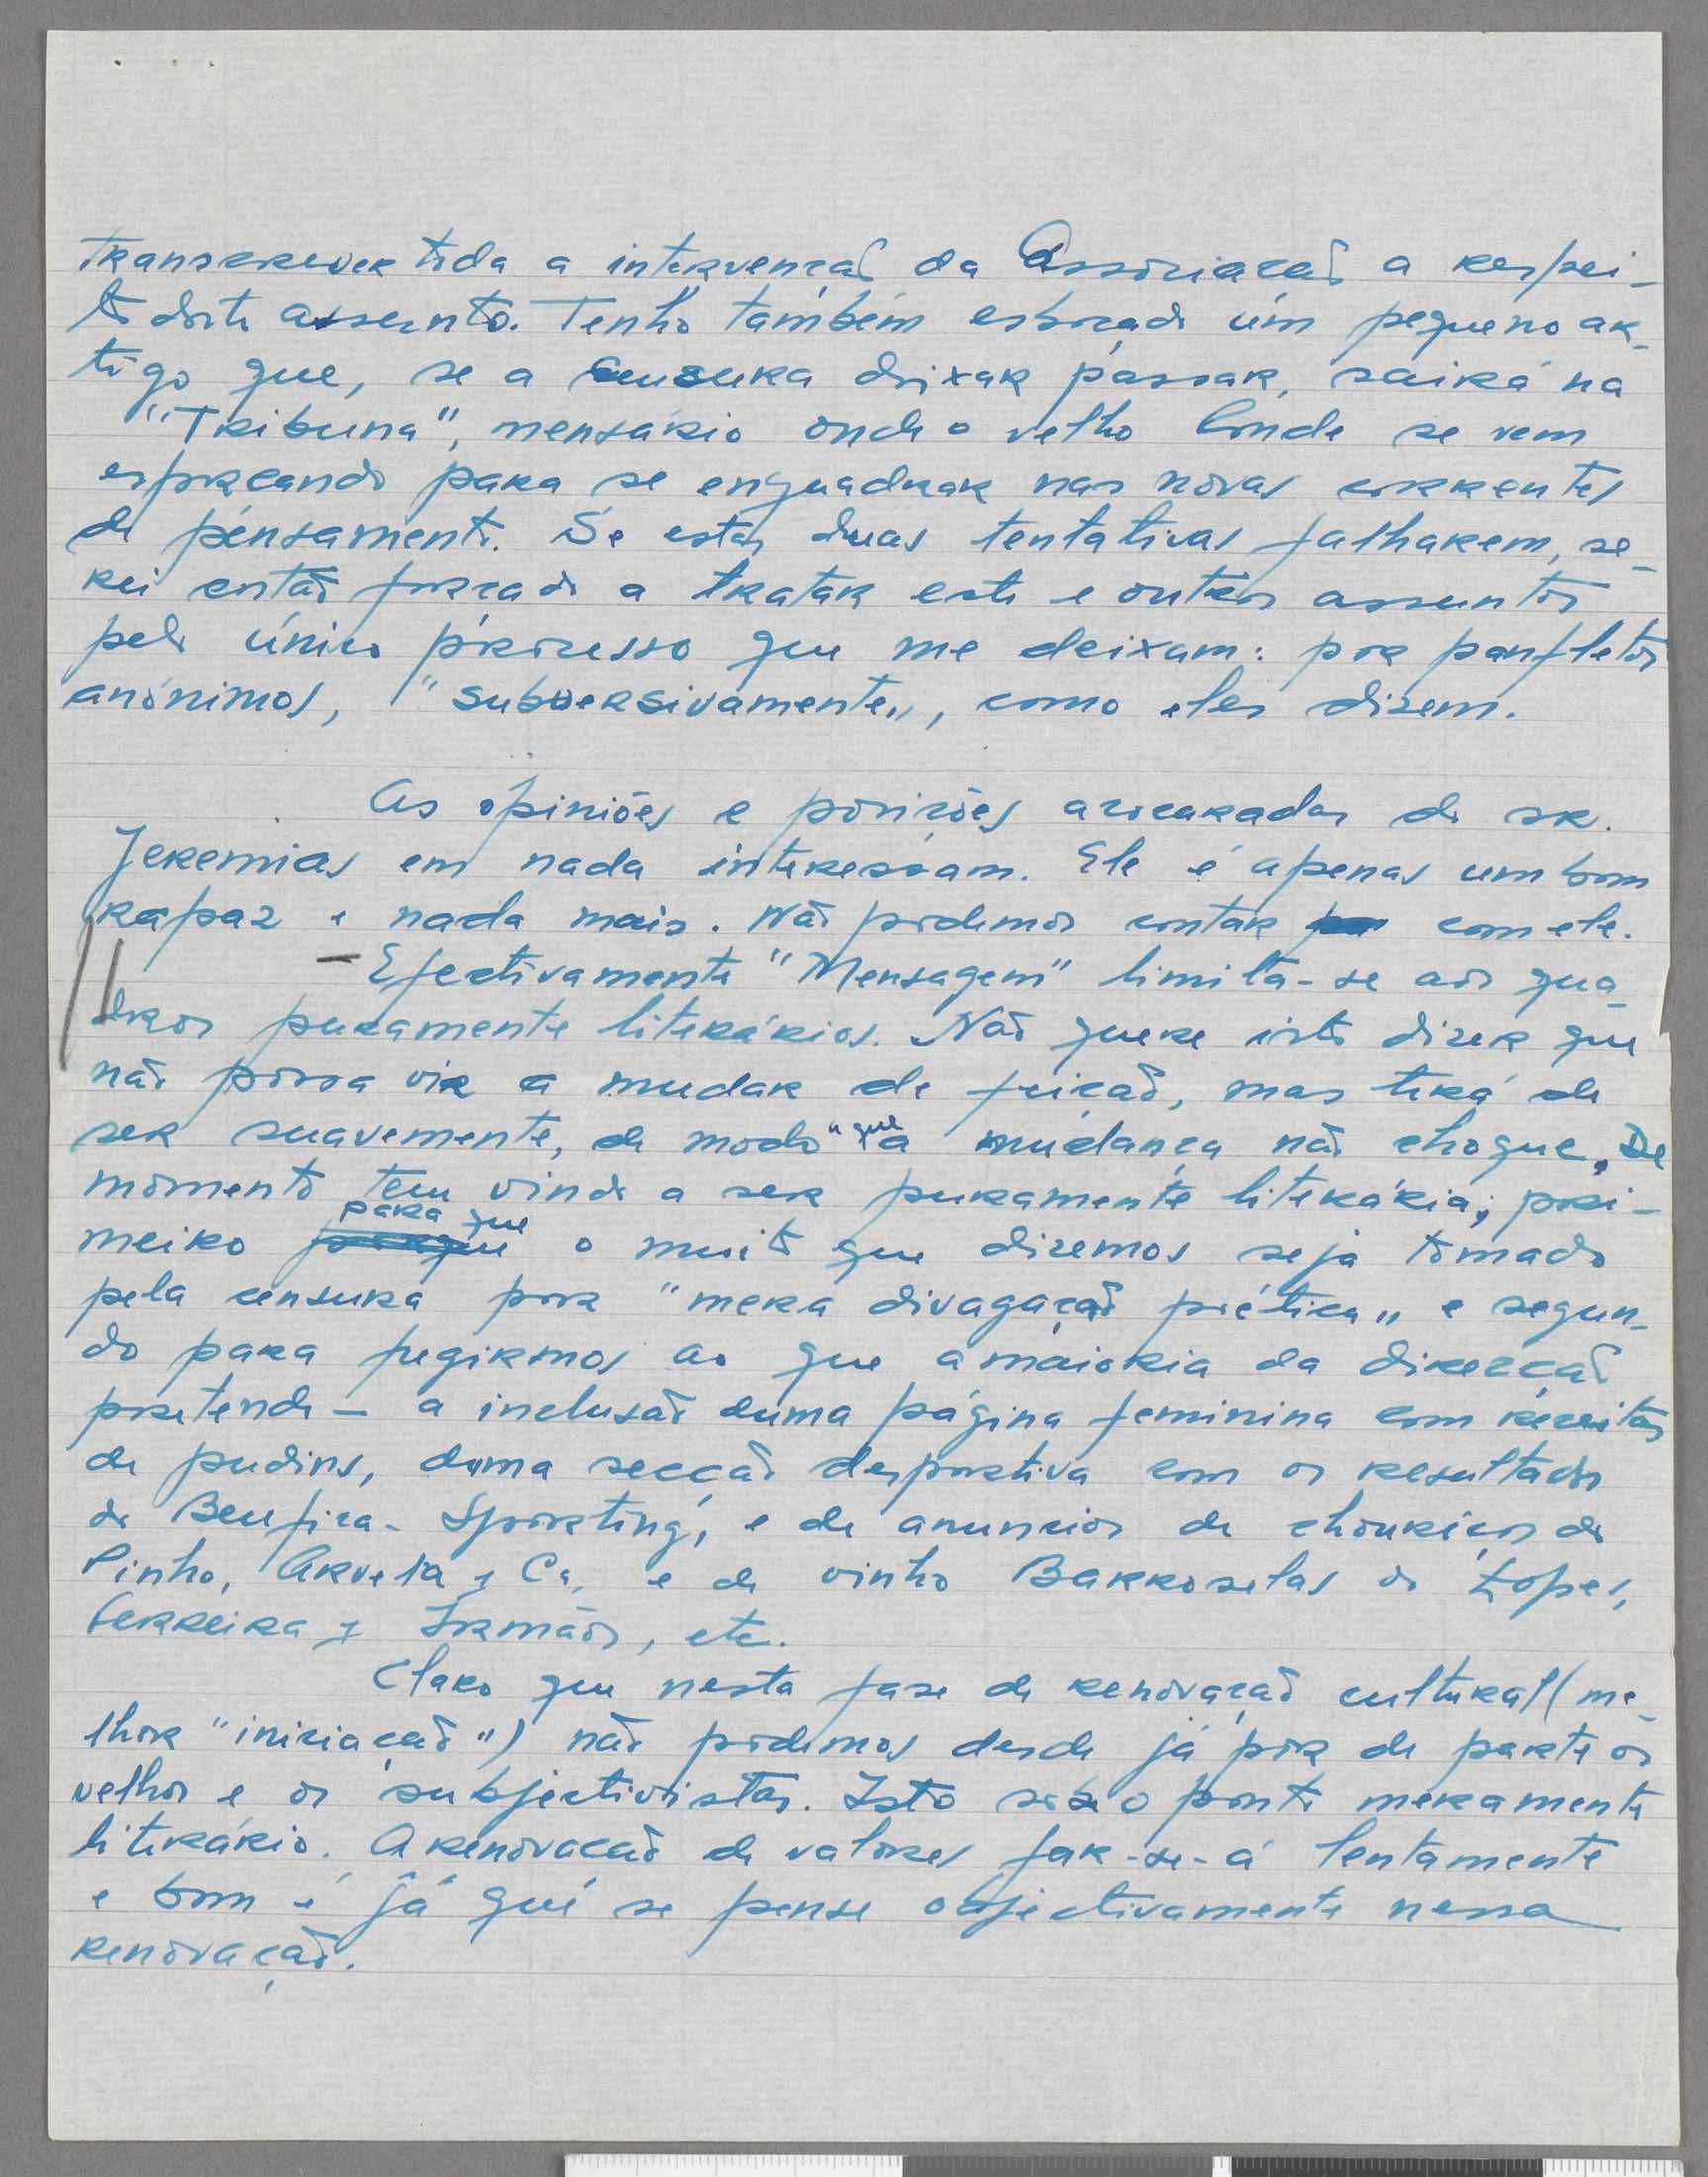 transcrever toda a intervenção da Associação a respei-
to deste assunto. Tenho também esboçado um pequeno ar-
tigo que, se a censura deixar passar, sairá na
"Tribuna", mensário onde o velho Conde se vem
esforçando para se enquadrar nas novas correntes
de pensamento. Se estas duas tentativas falharem, se-
rei então forçado a tratar este e outros assuntos
pelo único processo que me deixam: por panfletos
anónimos, "subversivamente", como eles dizem.
As opiniões e posições do sr.
Jeremias em nada interessam. Ele é apenas um bom
rapaz e nada mais. Não podemos contar com ele.
— Efectivamente "Mensagem" limita-se aos qua-
dros puramente literários. Não quere isto dizer que
não possa vir a mudar de feição, mas terá de
ser suavemente, de modo a que a mudança não choque. De
momento tem vindo a ser puramente literária; pri-
meiro para que o muito que dizemos seja tomado
pela censura por "mera divagação poética" e segun-
do para fugirmos ao que a maioria da direcção
pretende — a inclusão duma página feminina com receitas
de pudins, duma secção desportiva com os resultados
do Benfica-Sporting, e de anuncios de chouriços do
Pinho, Arvela & Ca, e de vinho Barroselas do Lopes,
Ferreira & Irmãos, etc.
Claro que nesta fase de renovação cultural (me-
lhor "iniciação") não podemos desde já pôr de parte os
velhos e os subjectivistas. Isto sob o ponto meramente
literário. A renovação de valores far-se-á lentamente
e bom é já que se pense objectivamente nessa
renovação.